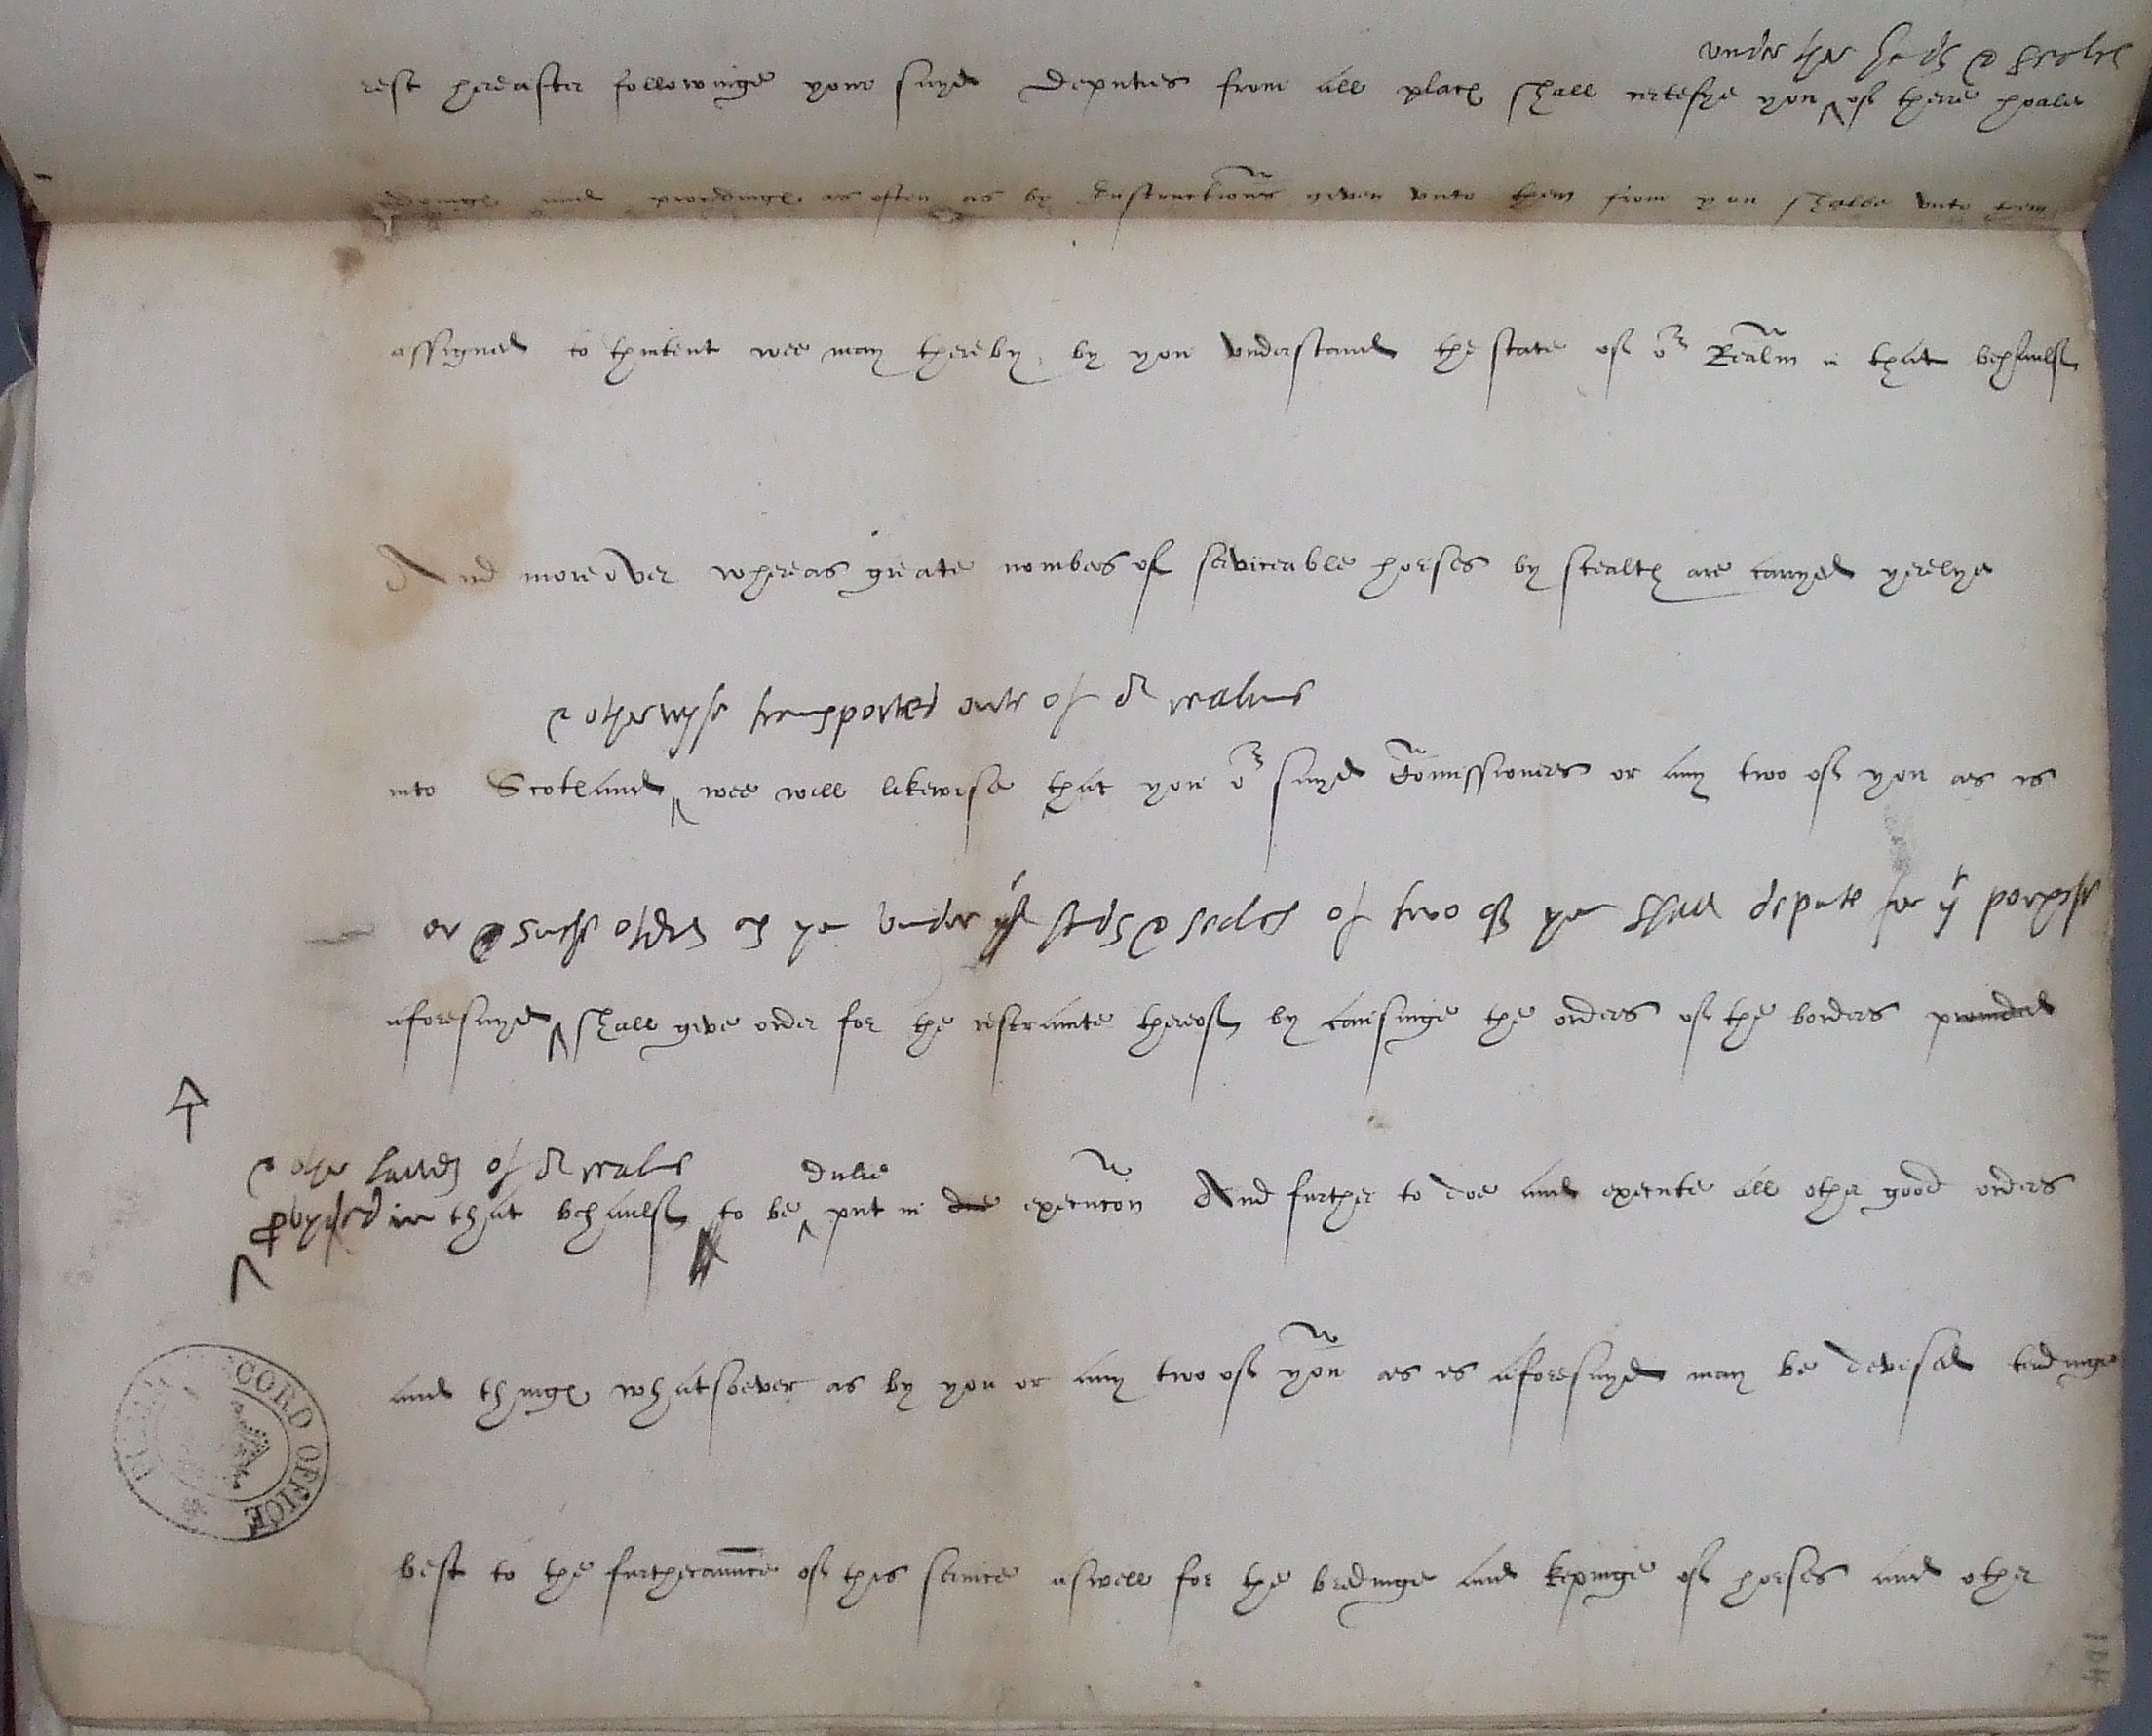 under ther hands & seales
rest hereafter followinge your sayd Deputies from all places shall certefye you of theire hoale
doinges and procedinges as often as by Instructions geven unto them from you shalbe unto them
assigned to thintent wee may thereby by you understand the state of or Realm in that behaulf
And moreover whereas greate nombers of serviceable horses by stealth are carryed yerelye
& otherwyse transported oute of or realme
into Scotland wee will likewise that you or sayd Comissioners or any two of you as is
or suche others as ye under hands & seales of two of you shall depute for yt porpose
aforesayd shall geve order for the restrainte thereof by causinge the orders of the borders provided
& other lawes of or realme
dulie
provyded in that behaulf to be put in due execucon And further to doe and execute all other good orders
and thinges whatsoever as by you or any two of you as is aforesayd may be devised tendinge
best to the furtheraunce of this service aswell for the bredinge and kepinge of horses and other
CORD OFFICE
104